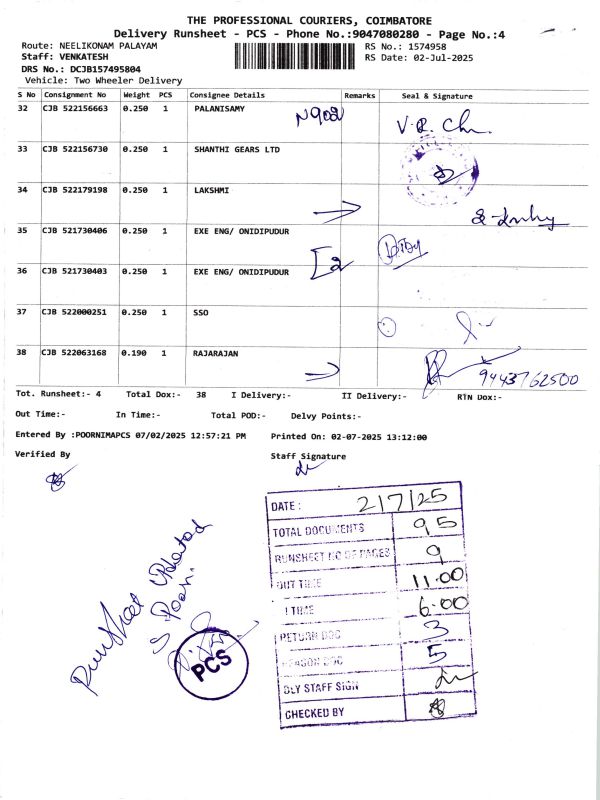 THE PROFESSIONAL COURIERS, COIMBATORE
Delivery Runsheet - PCS - Phone No.:9047080280 - Page No.:4
Route: NEELIKONAM PALAYAM
RS No.: 1574958
Staff: VENKATESH
RS Date: 02-Jul-2025
DRS No.: DCJB157495804
Vehicle: Two Wheeler Delivery
S No Consignment No Weight PCS Consignee Details Remarks Seal & Signature
32 CJB 522156663 0.250 1 PALANISAMY
33 CJB 522156730 0.250 1 SHANTHI GEARS LTD
34 CJB 522179198 0.250 1 LAKSHMI
35 CJB 521730406 0.250 1 EXE ENG/ ONIDIPUDUR
36 CJB 521730403 0.250 1 EXE ENG/ ONIDIPUDUR
37 CJB 522000251 0.250 1 SSO
38 CJB 522063168 0.190 1 RAJARAJAN
9443762500
Tot. Runsheet:- 4 Total Dox:- 38 I Delivery:- II Delivery:- RTN Dox:-
Out Time:- In Time:- Total POD:- Delvy Points:-
Entered By :POORNIMAPCS 07/02/2025 12:57:21 PM Printed On: 02-07-2025 13:12:00
Verified By Staff Signature
DATE : 2/7/25
TOTAL DOCUMENTS 95
RUNSHEET NO OF PAGES 9
OUT TIME 11.00
TIME 6.00
RETURN DOC 3
REASON DOC 5
DLY STAFF SIGN
CHECKED BY
Runsheet Updated
S Poorni
PCS